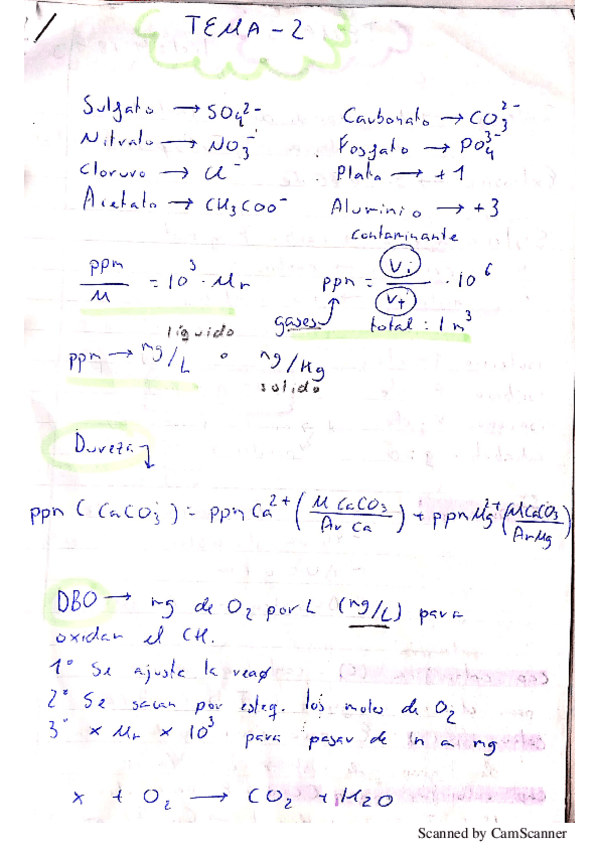 TEMA-2
Sulfato → SO₄²⁻
Nitrato → NO₃⁻
Cloruro → Cl⁻
Acetato → CH₃COO⁻
Carbonato → CO₃²⁻
Fosfato → PO₄³⁻
Plata → +1
Aluminio → +3
ppm / M = 10³ · Mr
contaminante
ppm = Vi / Vt · 10⁶
gases
total: 1 m³
líquido
ppm → mg/L o mg/Kg
solido
Dureza
ppm (CaCO₃) = ppm Ca²⁺ (M CaCO₃ / Ar Ca) + ppm Mg²⁺ (M CaCO₃ / Ar Mg)
DBO → mg de O₂ por L (mg/L) para
oxidar el CH.
1° Se ajusta la reacc
2° Se sacan por esteq. los moles de O₂
3° x Mr x 10³ para pasar de m a mg
x + O₂ → CO₂ + H₂O
Scanned by CamScanner